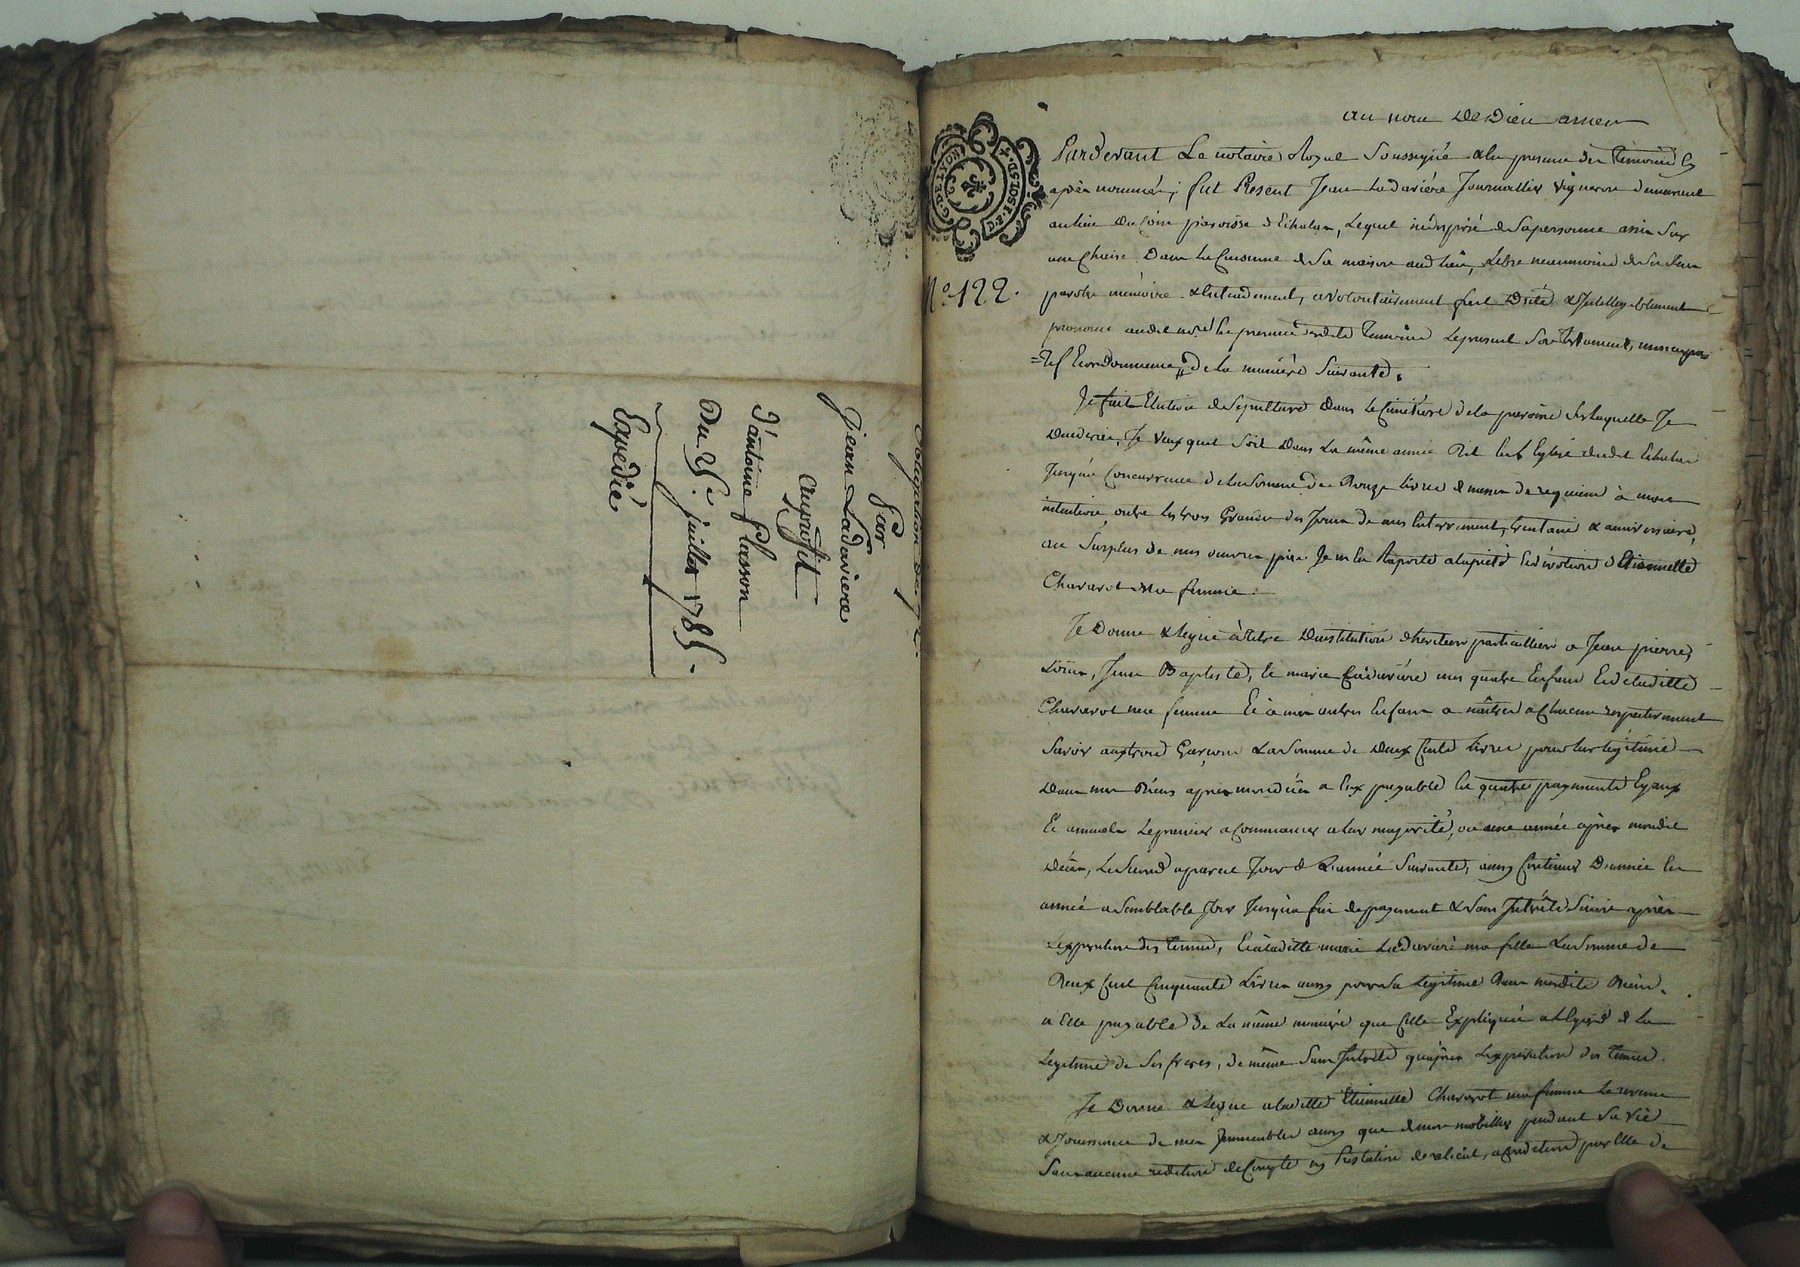 obligation de 72.
par
Jean Ladavière
au profit
d'antoine plasson
Du 25e juillet 1785.
Expedié
G. DE LYON
Nº. 122.
au nom De Dieu amen
Pardevant Le notaire Royal Soussigné & en presence des temoins Cy
après nommés; fut Present Jean Ladavière Journallier vigneron demeurant
au lieu du paroisse d'Echalas, Lequel indisposé de sa personne assis Sur
une Chaise Dans la Cuisinne de Sa maison audit lieu, Libre neanmoins de Ses Sens
parolle mémoire & Entendement, a volontairement fait Dicté & Intelligiblement
prononcé audit notre En presence desdits temoins Le present Son testament,
de la manière Suivante.
Je fait Election de Sepulture Dans le Cimetiere de la paroisse Sur laquelle Je
Decederai, Je veux quil Soit Dans La même année Dit En l'Eglise dudit Echalas
Jusqu'a Concurrence de la Somme de Douze livres de messes de requiem à mon
intention outre les trois Grandes des Jours de mes Enterrement, trentaine & anniversaire,
au Surplus de mes œuvres pies Je m'en Raporte a la pieté & dévotion d'Etiennette
Chavarot ma femme.
Je Donne & Legue à titre D'institution d'heritiers particulliers a Jean pierre,
Jean Baptiste, & marie Ladavière mes quatre Enfans & de laditte
Chavarot ma femme Et à mes autres Enfans a naître a Chacun respectivement
Savoir aux trois Garçons La Somme de Deux Cents livres pour leur légitime
Dans mes Biens après mon décès a Eux payable En quatre payements Egaux
Et annuels Le premier a Commencer a leur majorité, ou une année après mondit
décès, Le Second a pareil Jour de L'année Suivante, ainsy Continuer D'année En
année a Semblable Jour Jusqu'a fin de payement & Sans Intérêts Sinon après
L'expiration des termes, Et à laditte marie Ladavière ma fille La Somme de
Deux Cent Cinquante Livres aussy pour Sa Legitime Dans mesdits Biens,
a Elle payable de La même manière que Celle Expliquée a l'Egard de la
Legitime de Ses freres, de même Sans Intérêts qu'après L'expiration des termes.
Je Donne & Legue a laditte Etiennette Chavarot ma femme Le revenu
& Jouissance de mes Immeubles ainsy que de mon mobillier pendant Sa vie
Sans aucune reddition de Compte ny Prestation de reliquat, a Condition par Elle de